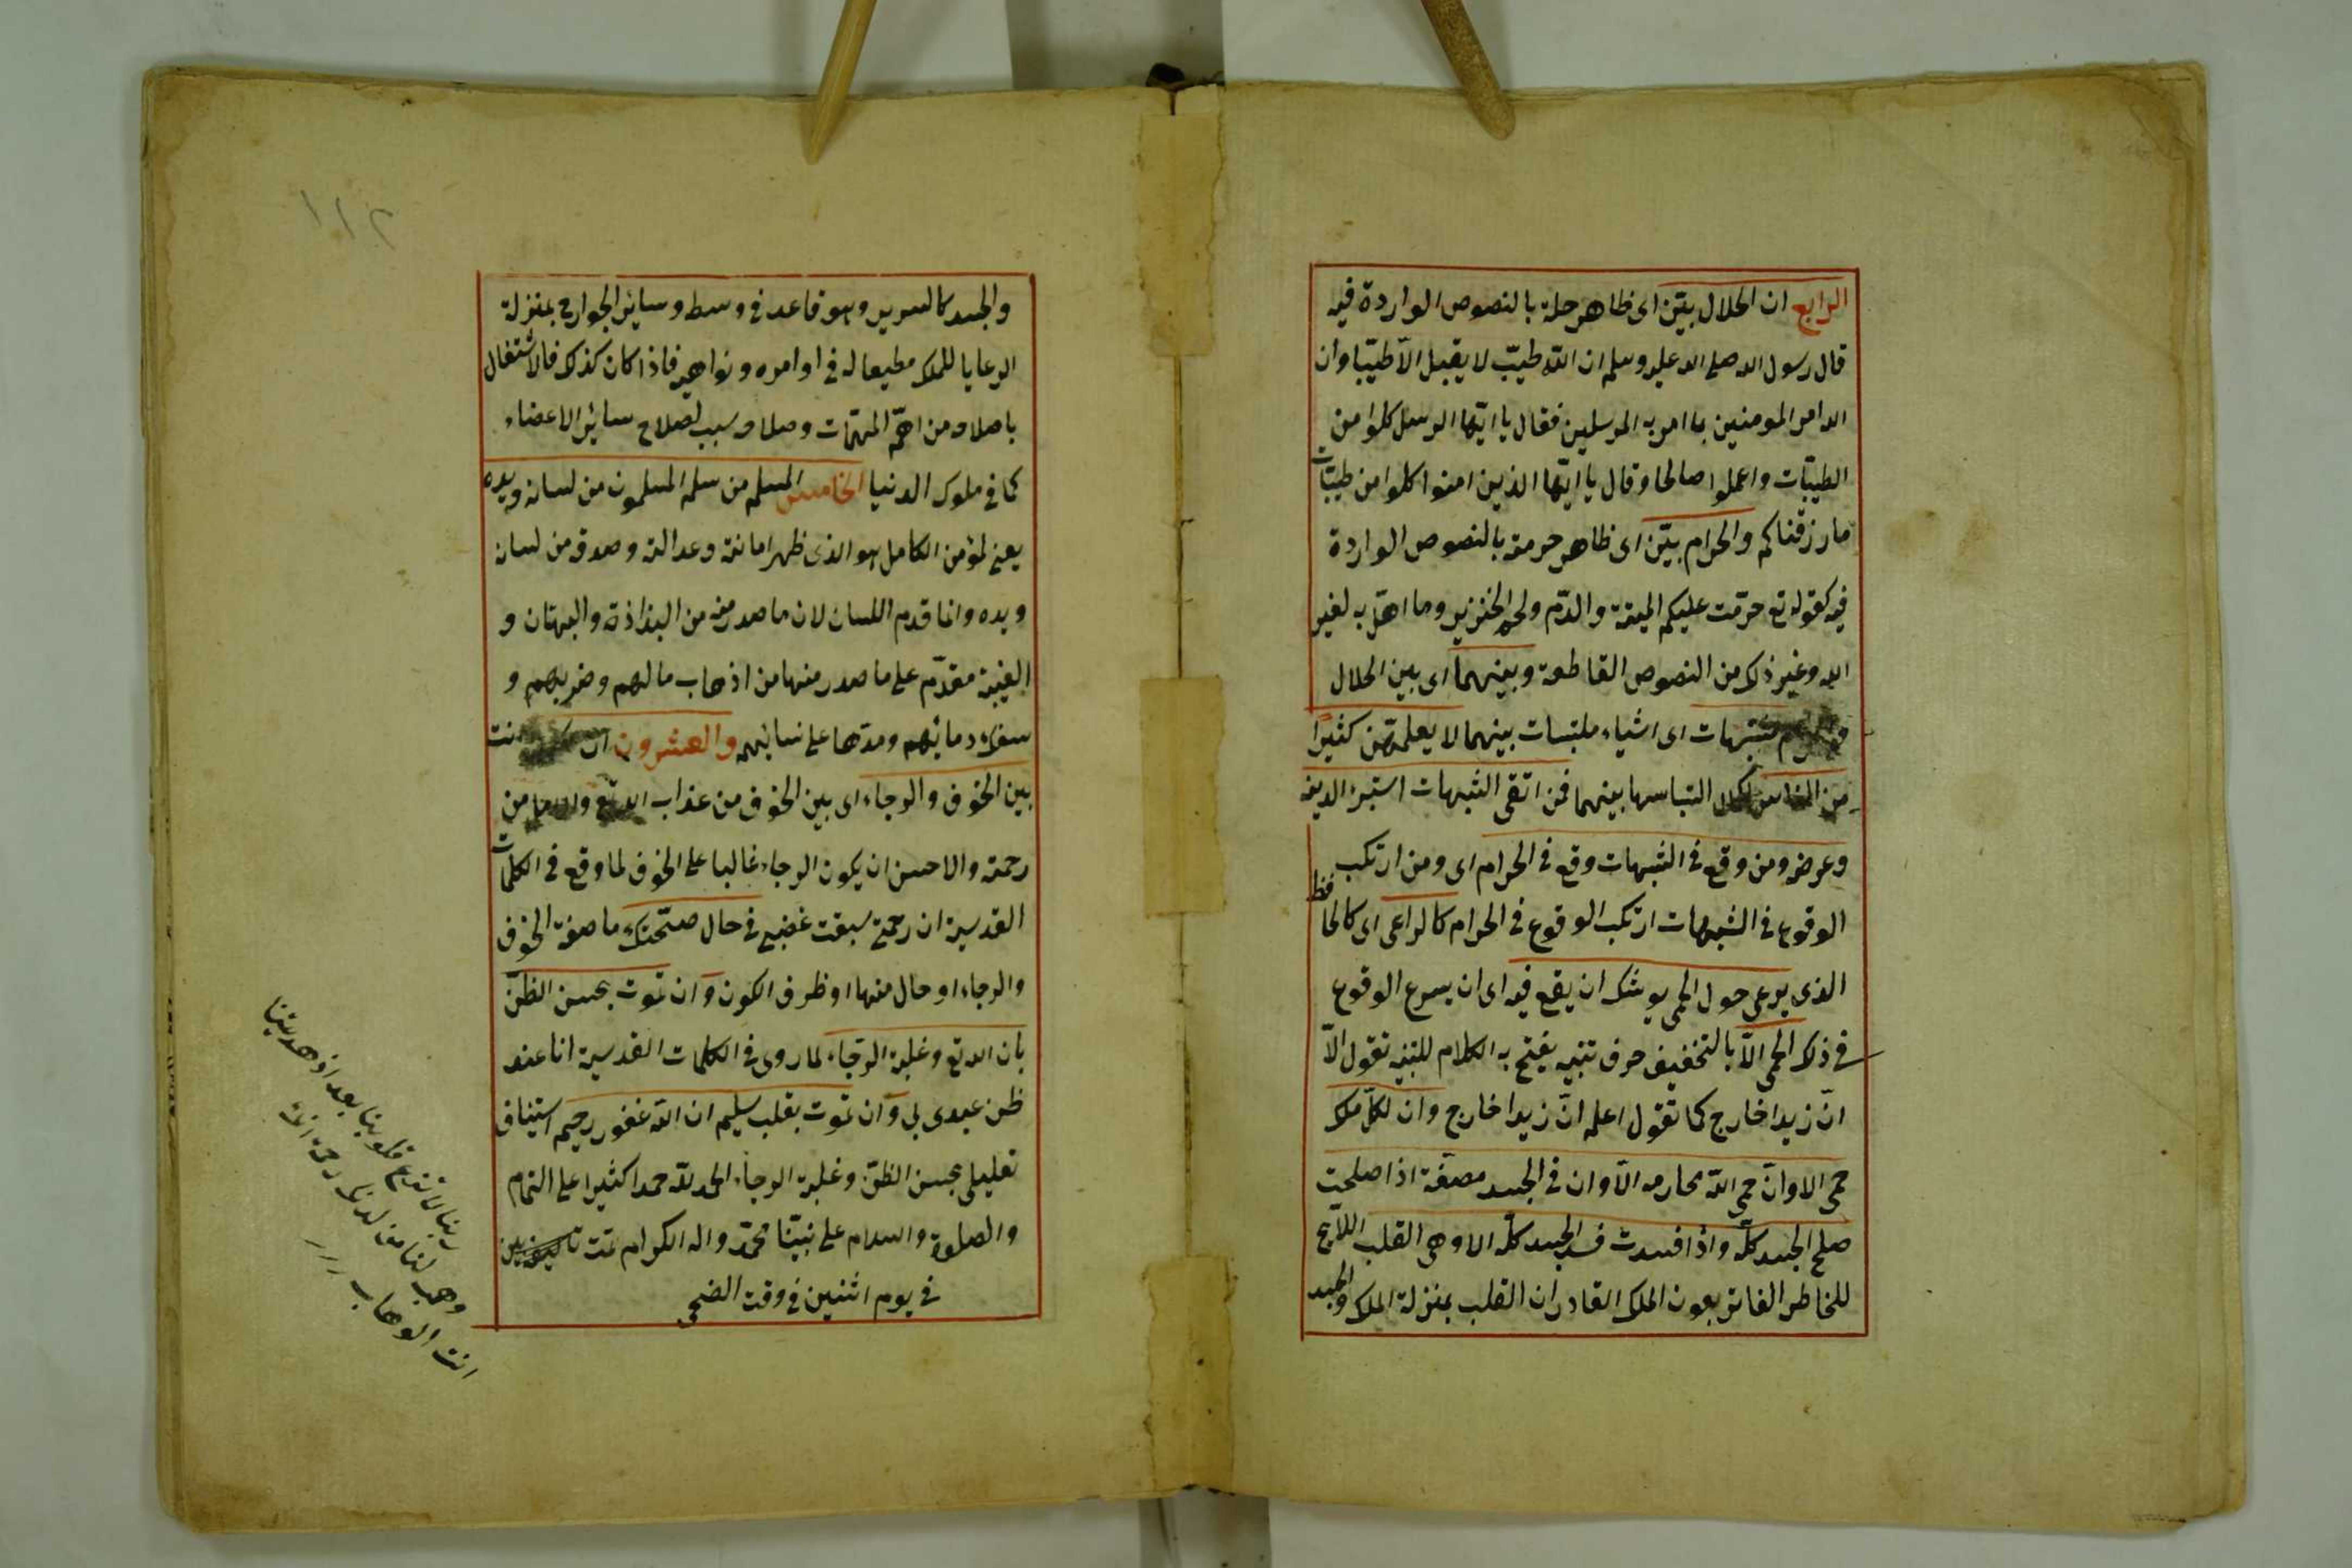 الرابع ان الحلال بيّن اى ظاهر حلة بالنصوص الواردة فيه
قال رسول الله صلى الله عليه وسلم ان اللّه طيّب لا يقبل الّا طيّبا وان
الله امر المومنين بما امر به المرسلين فقال يا ايّها الرسل كلوا من
الطيّبات واعملوا صالحا وقال يا ايّها الذين امنوا كلوا من طيّبات
ما رزقناكم والحرام بيّن اى ظاهر حرمته بالنصوص الواردة
فيه كقوله تع حرّمت عليكم الميتة والدّم ولحم الخنزير وما اهلّ به لغير
الله وغير ذلك من النصوص القاطعة وبينهما اى بين الحلال
مشتبهات اى اشياء ملتبسات بينهما لا يعلمهنّ كثيرًا
من الناس لكل التباسها بينهما فمن اتقى الشبهات استبرء لدينه
وعرضه ومن وقع في الشبهات وقع في الحرام اى ومن ارتكب
الوقوع في الشبهات ارتكب الوقوع في الحرام كالراعى اى كالحافظ
الذى يرعى حول الحمى يوشك ان يقع فيه اى ان يسرع الوقوع
في ذلك الحمى الّا بالتخفيف حرف تنبيه يفتح به الكلام للتنبيه تقول الّا
انّ زيدا خارج كما تقول اعلم انّ زيدا خارج وان لكلّ ملك
حمى الا وانّ حمى اللّه محارمه الّا وان في الجسد مضغة اذا صلحت
صلح الجسد كلّه واذا فسدت فسد الجسد كلّه الا وهى القلب اللّايح
للخاطر الفاتر بعون الملك القادر ان القلب بمنزلة الملك والجسد
والجسد كالسرير وهو قاعد في وسط وساير الجوارح بمنزلة
الرعايا للملك مطيعا له في اوامره ونواهيه فاذا كان كذلك فالاشتغال
باصلاحه من اهمّ المهمّات وصلاحه سبب لصلاح سائر الاعضاء
كما في ملوك الدنيا الخامس المسلم من سلم المسلمون من لسانه ويده
يعنى لمؤمن الكامل هو الذى ظهر امانته وعدالته وصدقه من لسان
ويده وانما قدم اللسان لان ما صدر منه من البذاذة والبهتان و
الغيبة مقدّم على ما صدر منها من اذهاب مالهم وضربهم و
سفك دمائهم ومدّها على نسائهم والعشرون ان
بين الخوف والرجاء اى بين الخوف من عذاب الله تع والرجا من
رحمته والاحسن ان يكون الرجاء غالبا على الخوف لما وقع في الكلمات
القدسية ان رحمتى سبقت غضبى في حال صحّتك ما صفة الخوف
والرجاء او حال منها او ظرف الكون وان تموت بحسن الظنّ
بان الله تع وغلبة الرجاء لما روى في الكلمات القدسية انا عند
ظن عبدى بي وان تموت بقلب سليم ان اللّه غفور رحيم استيناف
تعليلى بحسن الظنّ وغلبة الرجاء الحمد للّه حمدا كثيرا على التمام
والصلوة والسلام على نبيّنا محمّد واله الكرام تمت
في يوم اثنين في وقت الضحى
ربنا لا تزغ قلوبنا بعد اذ هديتنا
وهب لنا من لدنك رحمة انك
انت الوهاب
١١٢